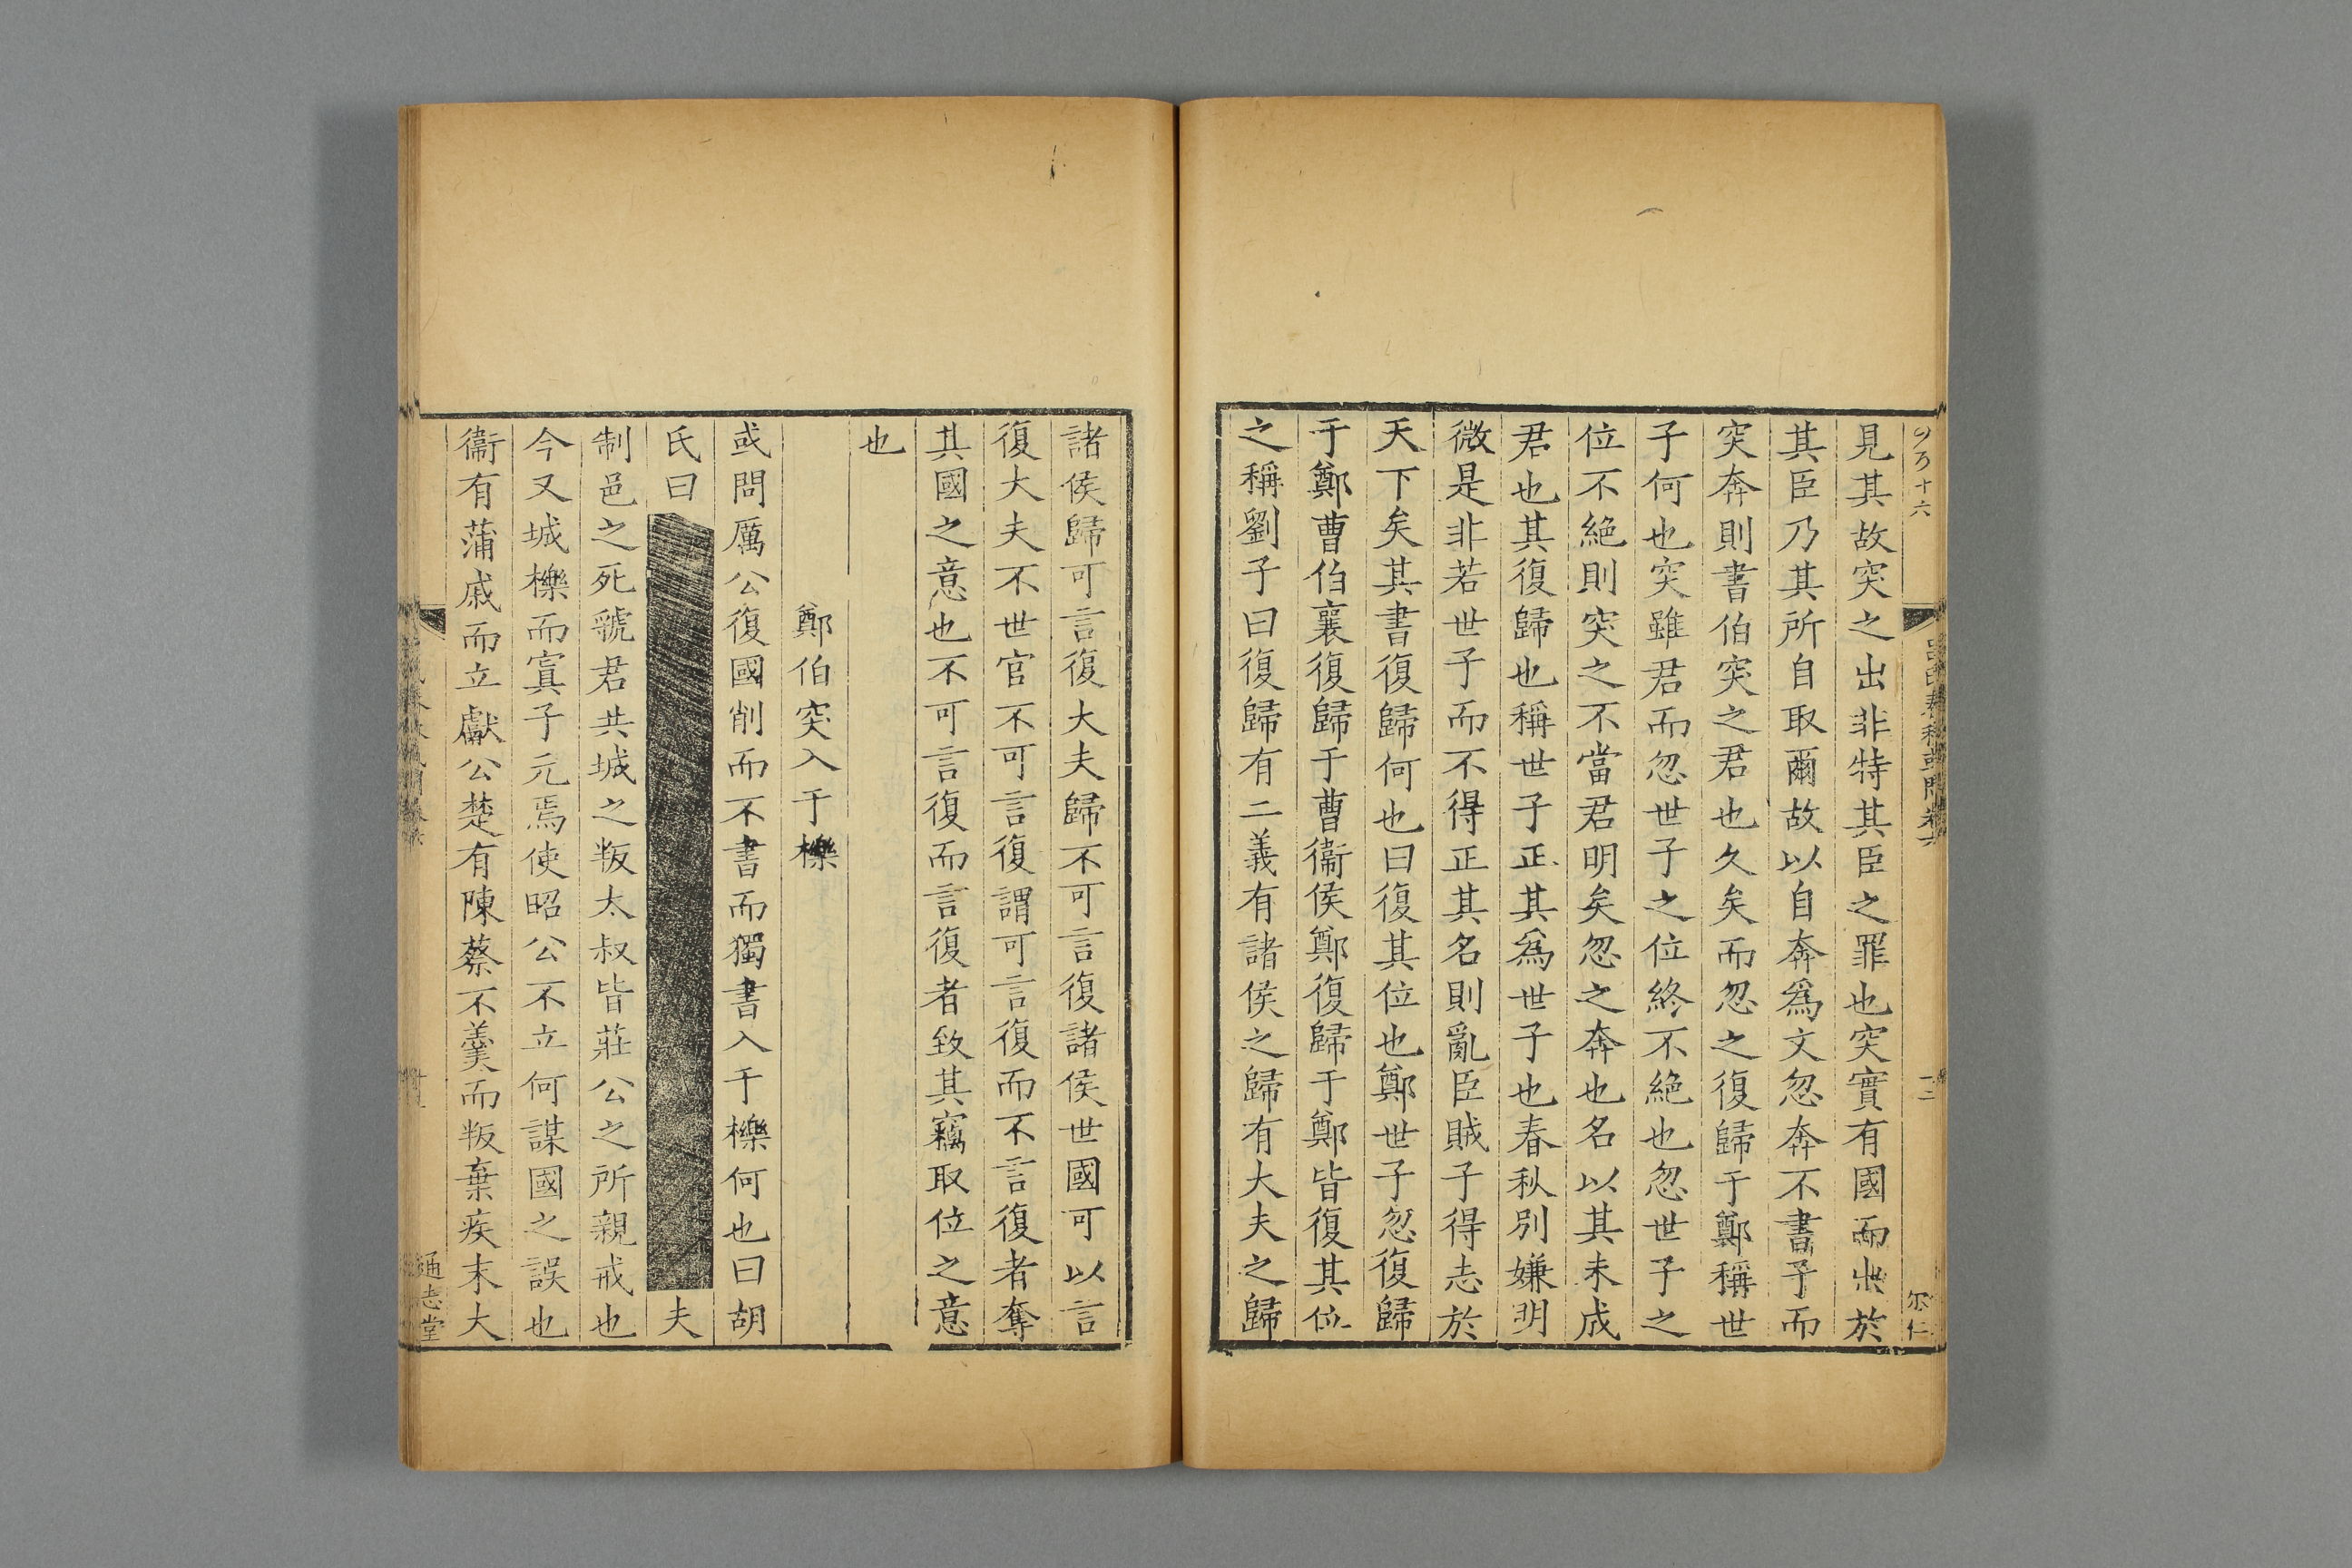 見其故突之出非特其臣之罪也突實有國而出於
其臣乃其所自取爾故以自奔爲文忽奔不書予而
突奔則書伯突之君也久矣而忽之復歸于鄭稱世
子何也突雖君而忽世子之位終不絶也忽世子之
位不絶則突之不當君明矣忽之奔也名以其未成
君也其復歸也稱世子正其爲世子也春秋别嫌明
微是非若世子而不得正其名則亂臣賊子得志於
天下矣其書復歸何也曰復其位也鄭世子忽復歸
于鄭曹伯襄復歸于曹衞侯鄭復歸于鄭皆復其位
之稱劉子曰復歸有二義有諸侯之歸有大夫之歸
諸侯歸可言復大夫歸不可言復諸侯世國可以言
復大夫不世官不可言復謂可言復而不言復者奪
其國之意也不可言復而言復者致其竊取位之意
也
鄭伯突入于櫟
或問厲公復國削而不書而獨書入于櫟何也曰胡
氏曰
夫
制邑之死虢君共城之叛太叔皆莊公之所親戒也
今又城櫟而寘子元焉使昭公不立何謀國之誤也
衞有蒲戚而立獻公楚有陳蔡不羹而叛棄疾末大
通志堂